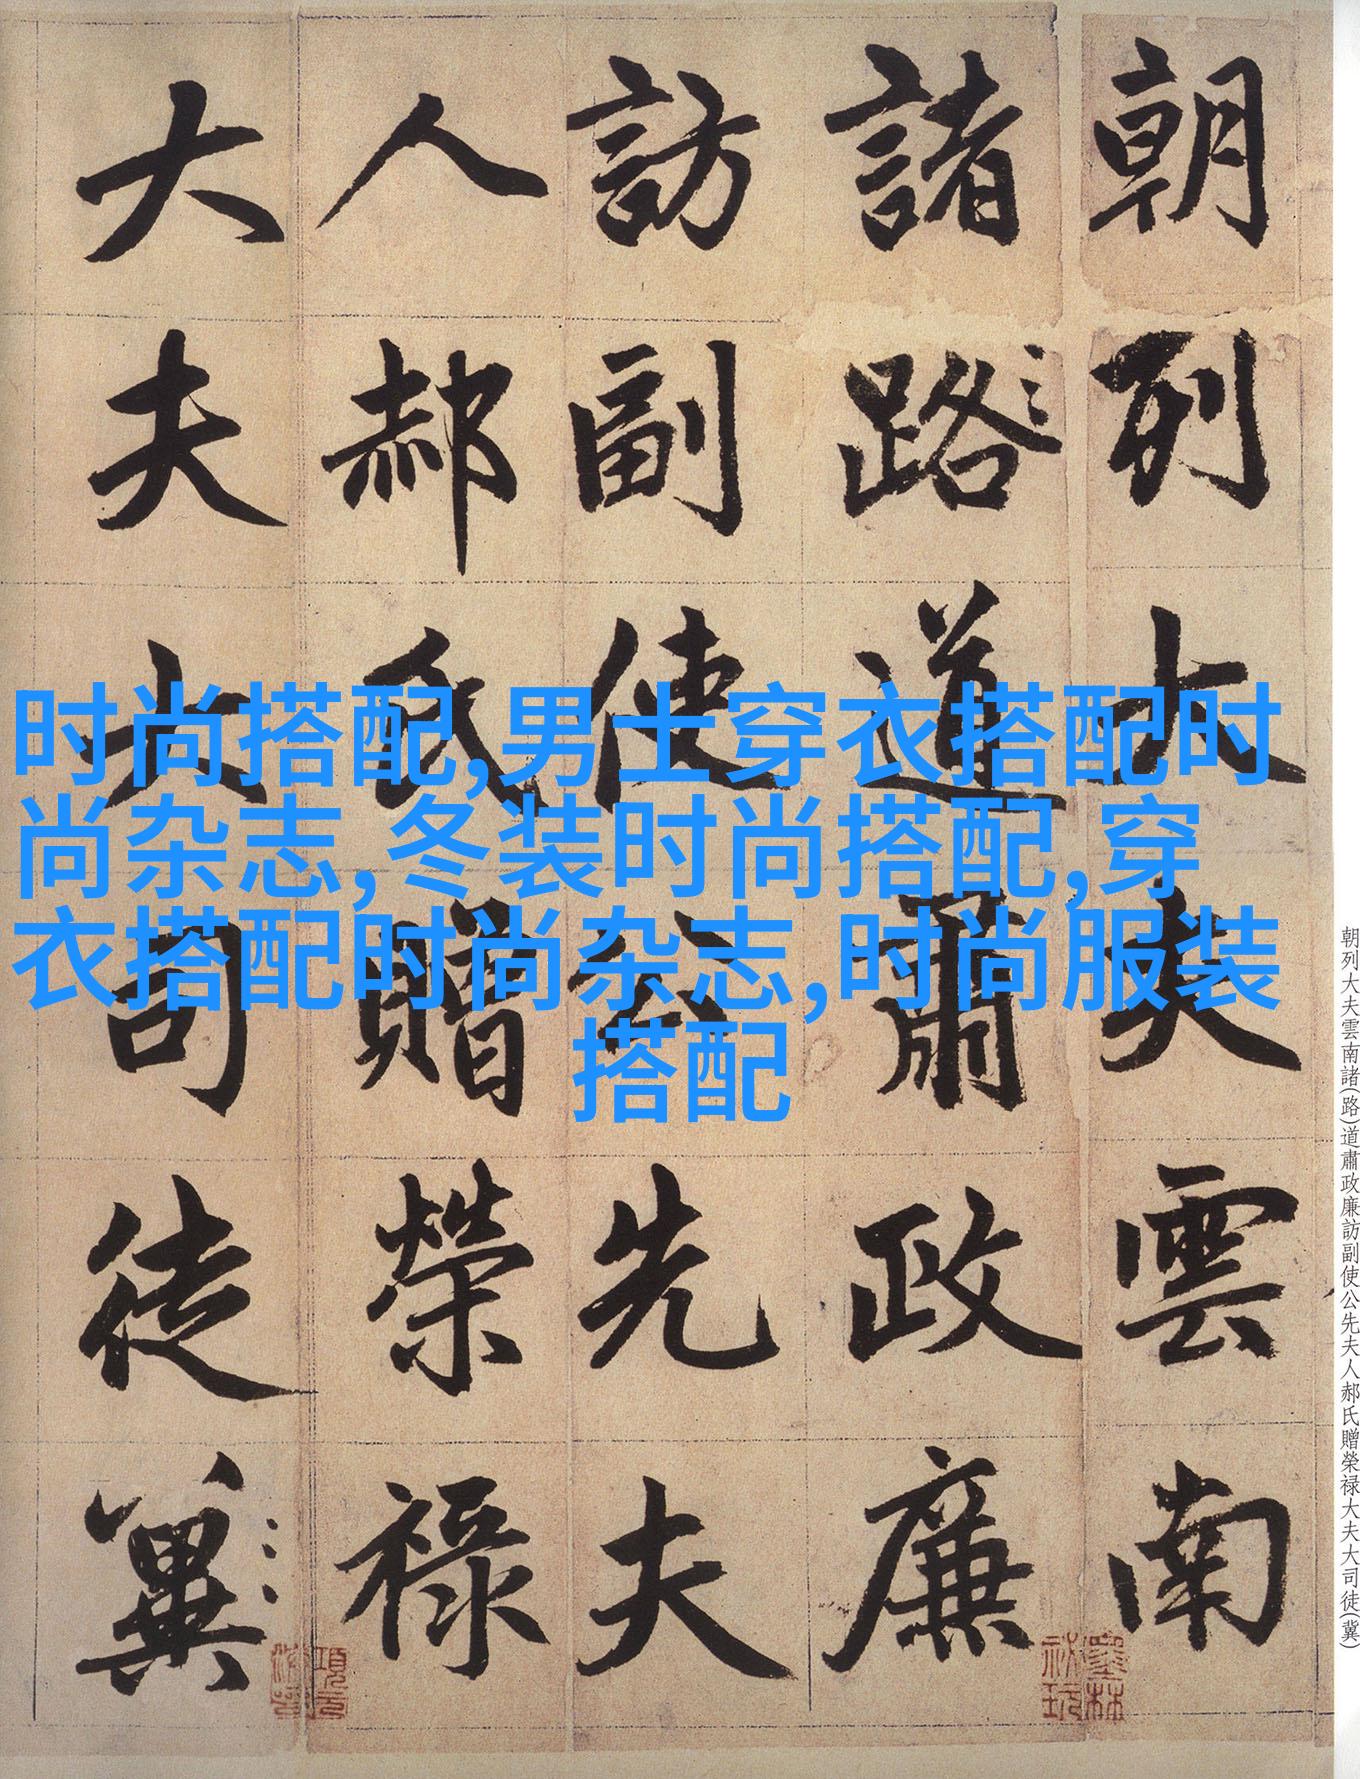 时尚搭配,男士穿衣搭配时
尚杂志,冬装时尚搭配,穿
衣搭配时尚杂志,时尚服装
搭配
朝列大夫雲南諸(路)道肅政廉訪副使公先夫人郝氏贈榮禄大夫大司徒(冀)
朝列大夫雲南
諸路道肅政廉
訪副使公先夫
人郝氏贈榮祿
大夫大司徒冀
墨林
祕玩
項元
汴印